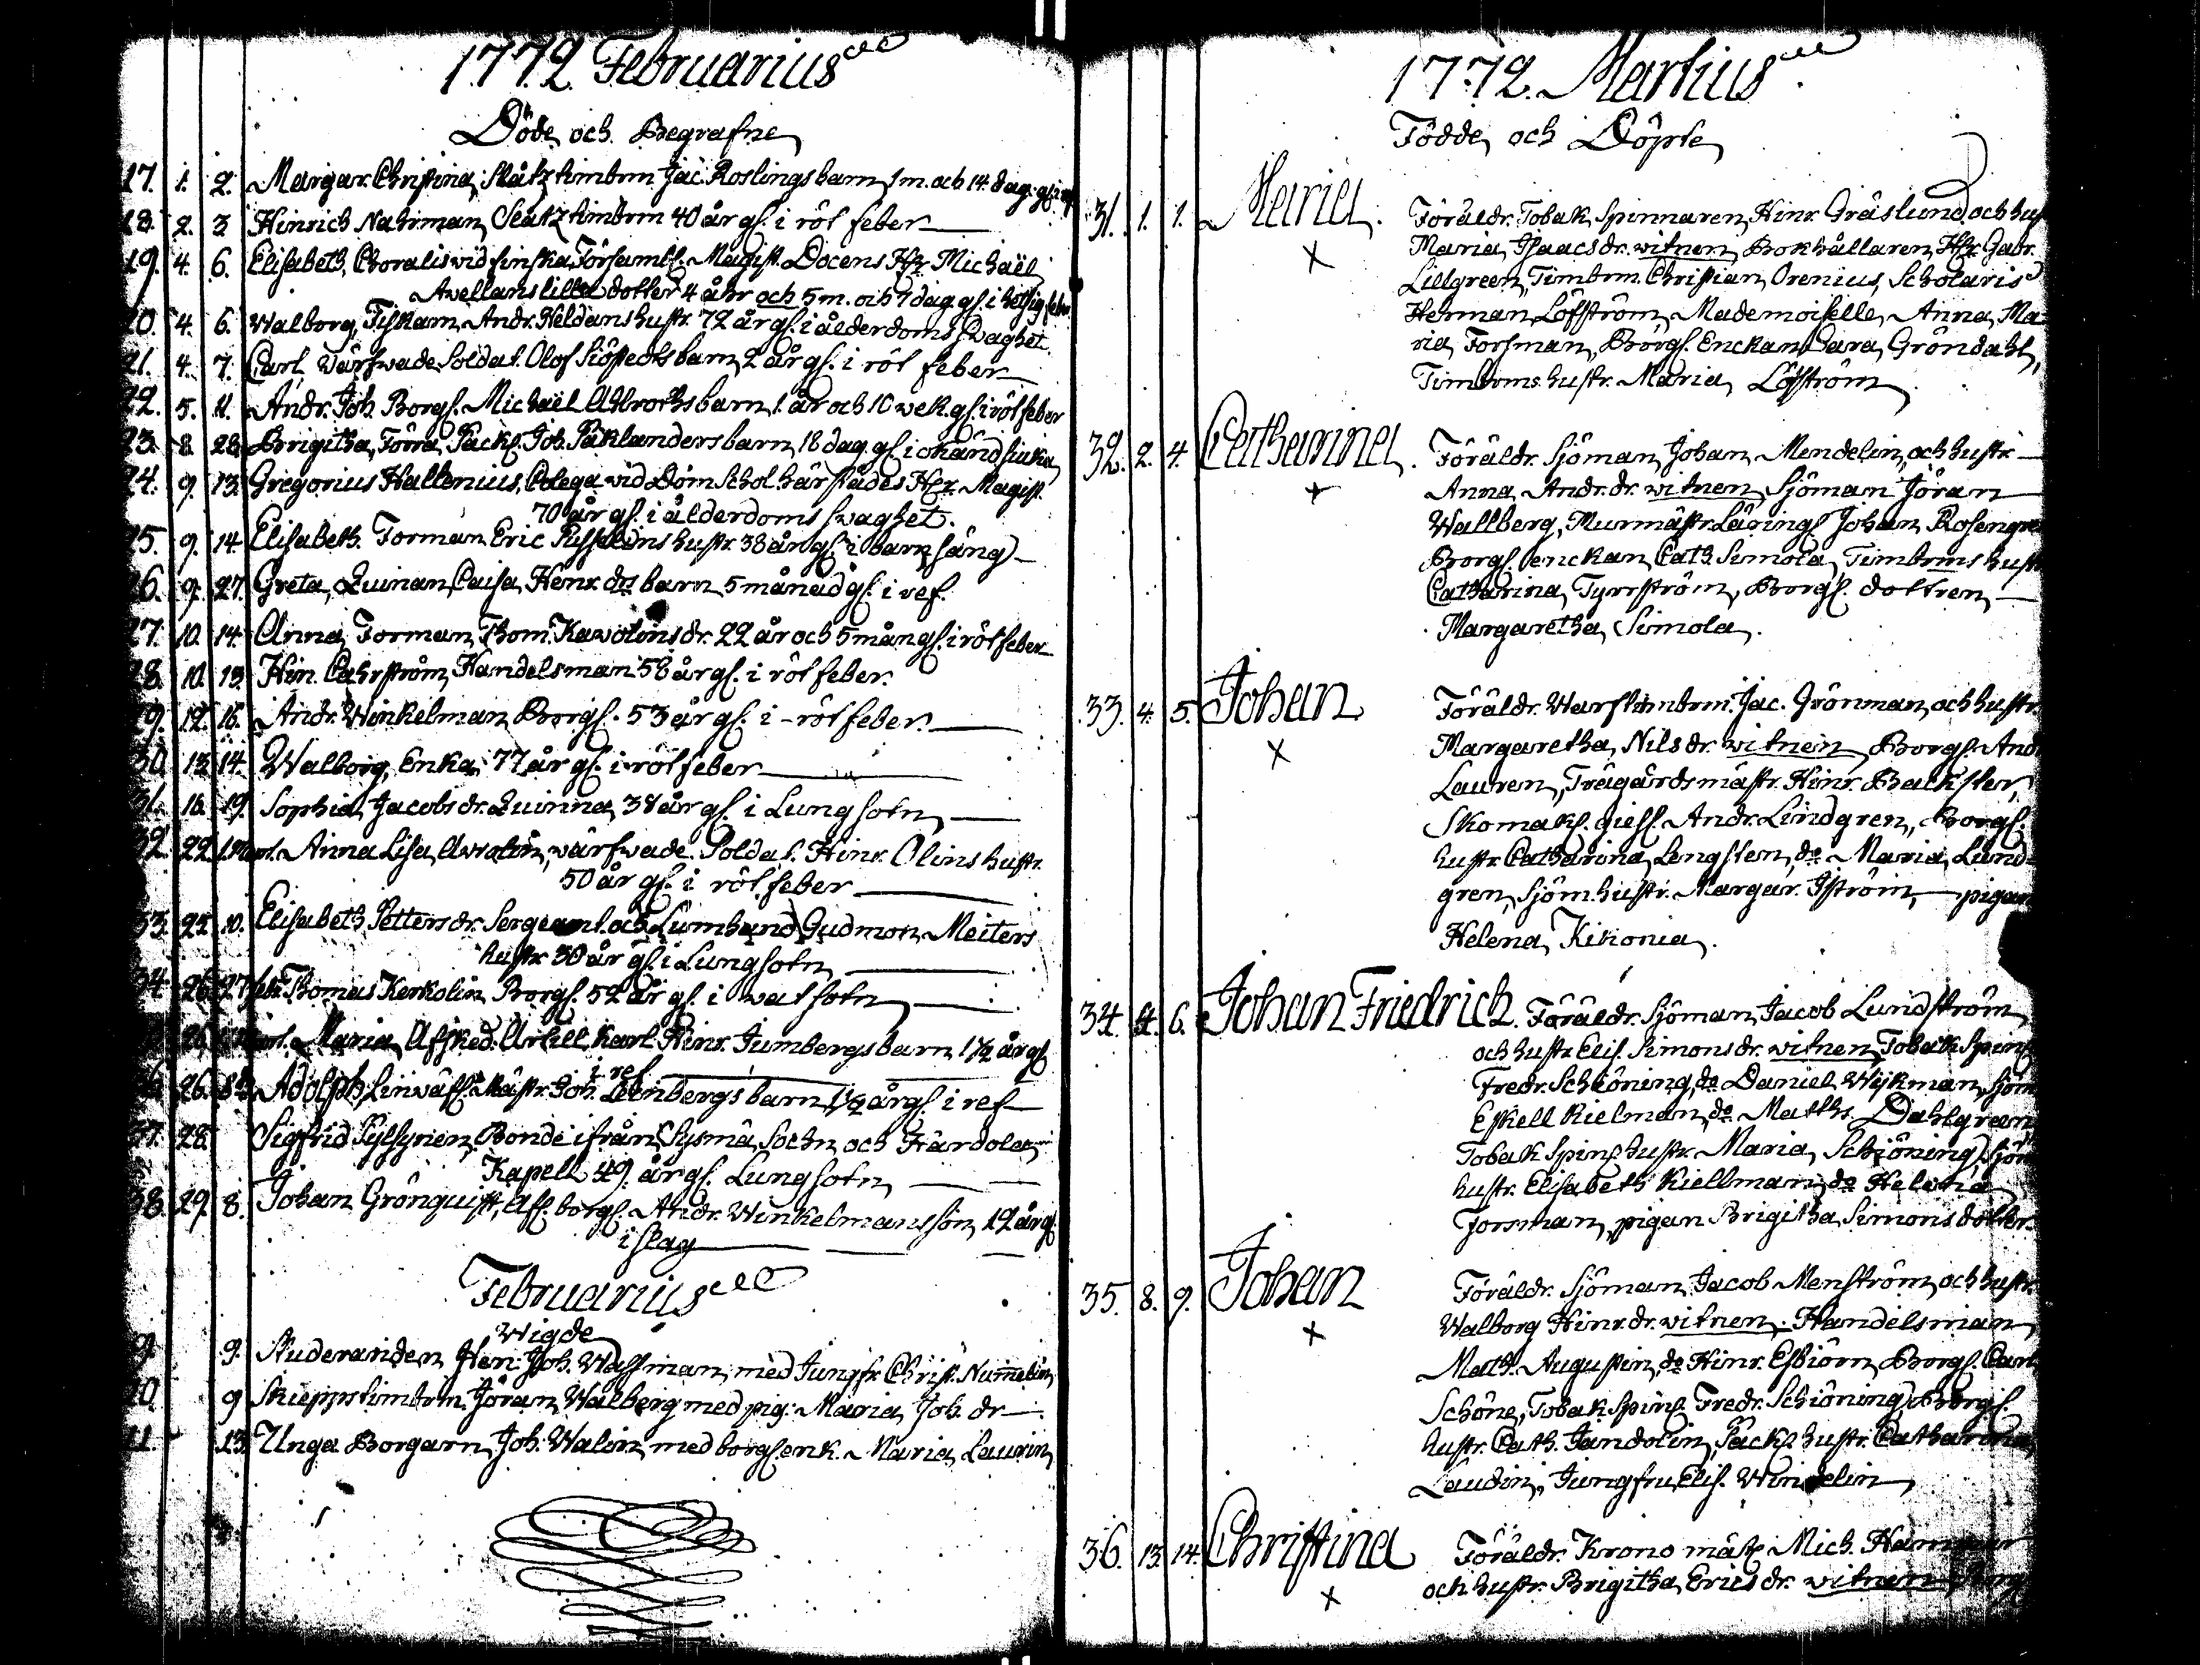 1772 Februarius
Döde och Begrafne
17. 1. 2. Margar. Christina, Slåtz timbrm Jac. Roslings barn 1 m. och 14 dag. gs.
18. 2. 3 Hinrich Nahrman, Slåtz timbrm 40 år gs. i röt feber
19. 4. 6. Elisabeth, Choralis wid finska Församl. Magist. Docens Hr Michaël
Avellans lilla dotter 4 åhr och 5 m. och 7 dag gs. i hetsig feber
20. 4. 6. Walborg, Fiskam. Andr. Heldans hustr. 72 år gs. i ålderdoms swaghet.
21. 4. 7. Carl Wärfwade Soldat. Olof barn 2 år gs. i röt feber
22. 5. 11. Andr. Joh. Borgs. Michaël barn 1. år och 10 wek. gs. i röt feber
23. 8. 23 Brigitha, Förra Pack. Joh. Päklanders barn, 18 dag. gs. i okänd siuka
24. 9. 13. Gregorius Hallenius, Colega vid Dom Schol. härstädes Hr. Magist.
70 år gs. i ålderdoms swaghet.
25. 9. 14. Elisabeth. Forman Eric hustr. 38 år gs. i barnsäng
26. 9. 27. Greta, Quinan Caisa Henr. drs barn 5 månad gs. i ref.
27. 10. 14. Anna, Forman Thom. Kavolins dr. 22 år och 5 mån gs. i röt feber
28. 10. 13. Hin. Cahrström, Handelsman 58 år gs. i röt feber.
29. 12. 16. Andr. Winkelman Borgs. 53 år gs. i röt feber.
30. 13. 14. Walborg, Enka, 77 år gs. i röt feber
31. 16. 19. Sophia Jacobs dr. Quinna, 38 år gs. i Lungsotn
32. 22 Anna Lisa, wärfwade. Soldat. Hinr. Olins hustr.
50 år gs. i röt feber
33. 25. 10. Elisabeth Petters dr. Sergeant. och Gudmon Meiters
hustr 30 år gs. i Lungsotn
34. 26. 27 febr. Thomas Kerkolin Borgs. 52 år gs. i watsotn
26. Maria, Afsked. Artill. Karl. Hinr. Jumbergs barn 1 1/2 år gs.
i ref
36. 26. 8 Adolph, Linwäf. Mästr. Joh. Lembergs barn 1/2 år gs. i ref
37. 28. Sigfrid Bonde ifrån Sysmä Sochn och Härdola
Kapell 49. år gs. Lungsotn
38. 29. 8. Johan Grönquist, borgs. Andr. Winkelmans son 12 år gs.
i slag
Februarius
Wigde
9. 9. Studeranden Herr Joh. Wassman, med Jungfr Christ. Nummelin
10. 9 Skieppstimbrm Jöran Walberg med pig. Maria Joh. dr
11. 13. Unga Borgarn Joh. Walin med borgs. enk. Maria Laurin
1772. Martius
Födde och Döpte
31. 1. 1. Maria. Föräldr. Tobak Spinnaren Hinr. Gräslund och hus
Maria, Isaacs dr. witnen Bokhållaren Hr Gabr.
Lillgreen, Timbrm. Christian Orenius, Scholaris
Herman Löfström, Mademoiselle Anna Ma
ria Forsman, Borgs. Enckan Sara Gröndahl,
Timbrms hustr. Maria Löfström
32. 2. 4. Catharina. Föräldr. Sjöman Johan Mendelin och hustr
Anna Andr. dr. witnen Sjöman Jöran
Wallberg, Murmästr. Lärings Johan Rosengre
Borgs. enckan Cath. Simola, Timbrms hustr
Catharina Tyrrström, Borgs. dottren
Margaretha Simola.
33. 4. 5. Johan Föräldr. Warfstimbrm. Jac. Grönman och hustr.
Margaretha Nils dr. witnen Borgs. And
Lauren, Trägårdsmästr. Hinr. Backster,
Skomaks. giess. Andr. Lindgren, Borgs.
hustr. Catharina Lengsten, do Maria Lund-
gren, Sjöm. hustr. Margar. Iström, pigan
Helena Kikonia.
34. 4. 6. Johan Friedrich. Föräldr. Sjöman Jacob Lundström
och hustr Elis. Simons dr. witnen Tobak Spins
Fredr. Schiöning, do Daniel Wijkman, sjöm
Eskell Kielman, do Maths Dahlgreen
Tobak Spins hustr. Maria Schiöning, sjöm
hustr. Elisabeth Kiellman, do Helena
Forsman, pigan Brigitha Simons dotter.
35. 8. 9. Johan Föräldr. Sjöman Jacob Menström och hustr.
Walborg Hinr. dr. witnen. Handelsman
Math. Augustin, do Hinr. Esbiörn, Borgs. Carl
Schöne, Tobak Spins. Fredr. Schiöning, Borgs.
hustr. Cath. Jandolin, Päcks hustr. Catharina
Laudin, Jungfru Elis. Windelin
36. 13. 14. Christina Föräldr. Krono mäst Mich.
och hustr. Brigitha Erics dr. witnen